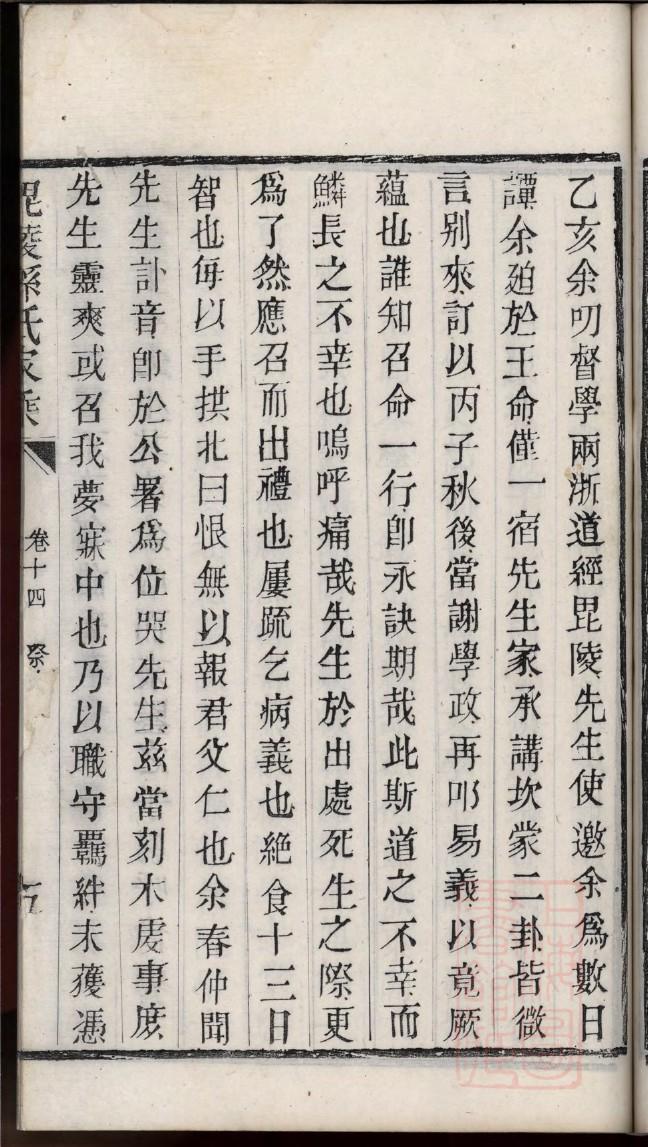 乙亥余叨督學兩浙道經毘陵先生使邀余爲數日
譚余廹於王命僅一宿先生家承講坎蒙二卦皆微
言别來訂以丙子秋後當謝學政再叩易義以竟厥
蘊也誰知召命一行卽永訣期哉此斯道之不幸而
鱗長之不幸也嗚呼痛哉先生於出處死生之際更
爲了然應召而出禮也屢疏乞病義也絶食十三日
智也每以手拱北曰恨無以報君父仁也余春仲聞
先生訃音卽於公署爲位哭先生兹當刻木虔事庶
先生靈爽或召我夢寐中也乃以職守覊絆未獲憑
毘陵孫氏家乘
卷十四 祭
五